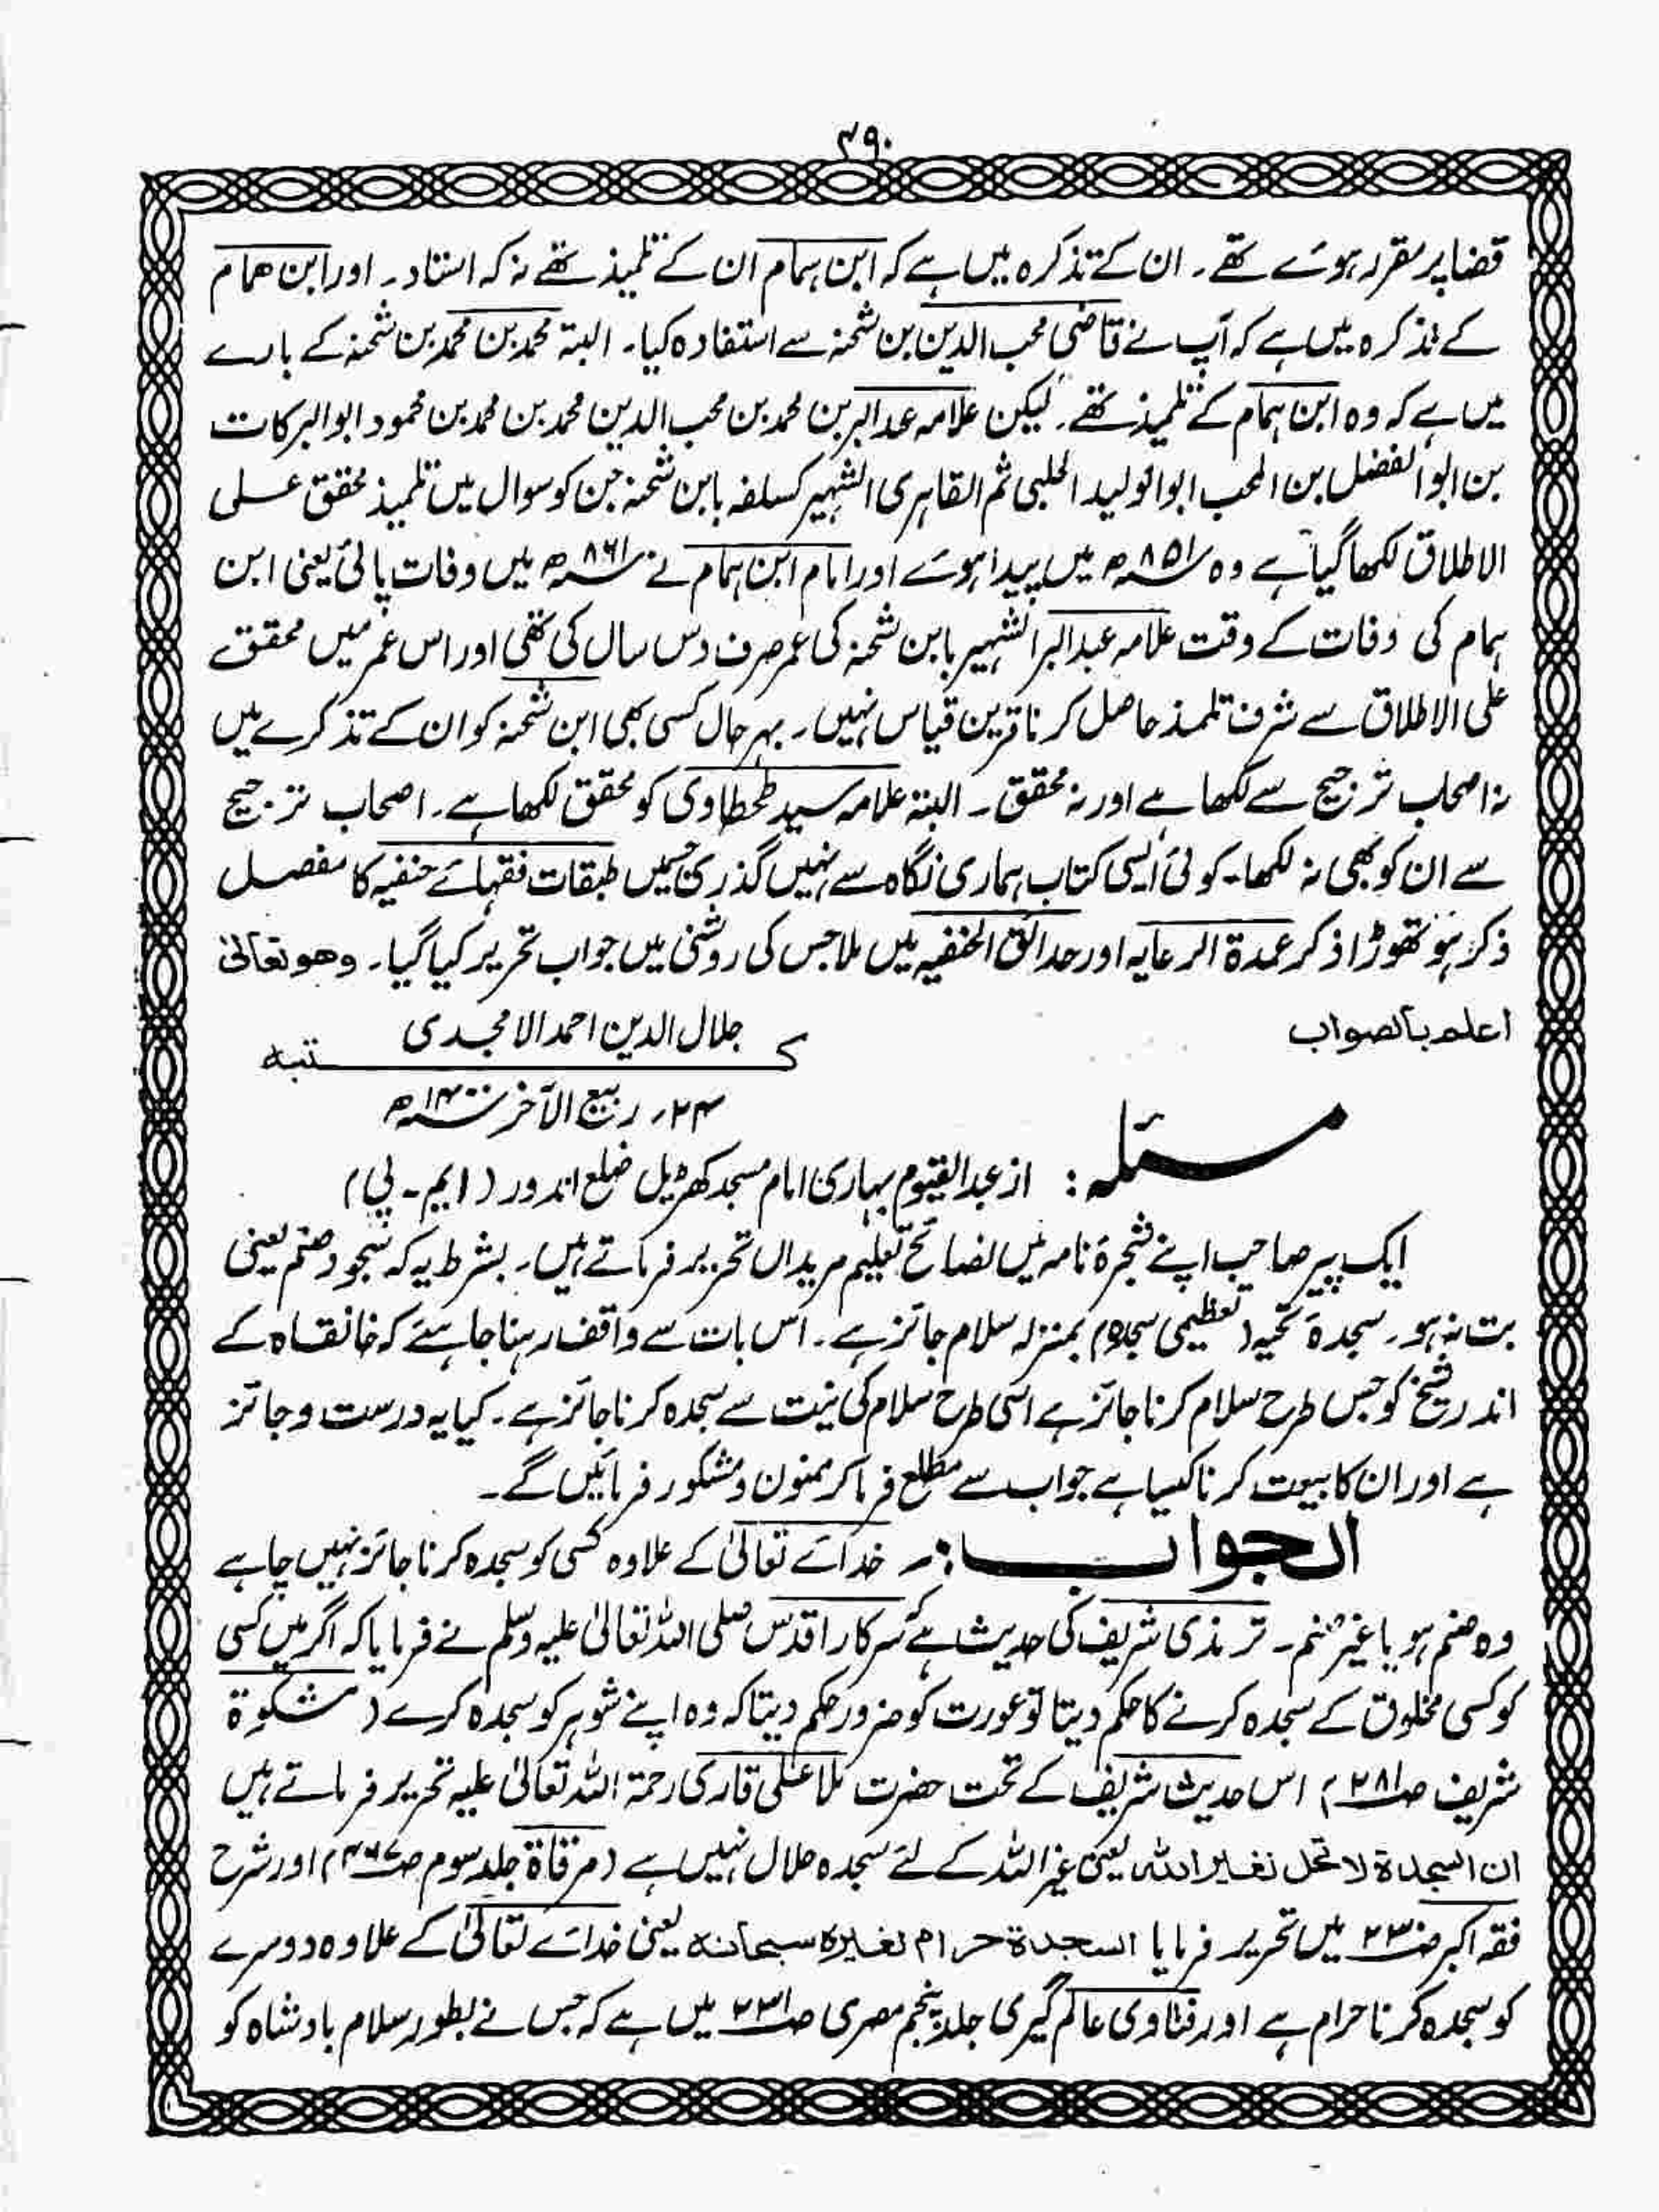 ۳۹۰
قضا پر مقرر ہوئے تھے۔ ان کے تذکرہ میں ہے کہ ابن ہمام ان کے تلمیذ تھے نہ کہ استاد۔ اور ابن ھمام
کے تذکرہ میں ہے کہ آپ نے قاضی محب الدین بن شحنہ سے استفادہ کیا۔ البتہ محمد بن محمد بن شحنہ کے بارے
میں ہے کہ وہ ابن ہمام کے تلمیذ تھے۔ لیکن علامہ عبدالبر بن محمد بن محب الدین محمد بن محمد بن محمود ابوالبرکات
بن ابو الفضل بن المحب ابوالولید الحلبی ثم القاہری الشہیر کسلفہ بابن شحنہ جن کو سوال میں تلمیذ محقق علی
الاطلاق لکھا گیا ہے وہ ۸۵۱ھ میں پیدا ہوئے اور امام ابن ہمام نے ۸۶۱ھ میں وفات پائی یعنی ابن
ہمام کی وفات کے وقت علامہ عبدالبر الشہیر بابن شحنہ کی عمر صرف دس سال کی تھی اور اس عمر میں محقق
علی الاطلاق سے شرف تلمذ حاصل کرنا قرین قیاس نہیں۔ بہر حال کسی بھی ابن شحنہ کو ان کے تذکرے میں
نہ اصحاب ترجیح سے لکھا ہے اور نہ محقق۔ البتہ علامہ سید طحطاوی کو محقق لکھا ہے۔ اصحاب ترجیح
سے ان کو بھی نہ لکھا۔ کوئی ایسی کتاب ہماری نگاہ سے نہیں گذری جسمیں طبقات فقہائے حنفیہ کا مفصل
ذکر ہو تھوڑا ذکر عمدۃ الرعایہ اور حدائق الحنفیہ میں ملا جس کی روشنی میں جواب تحریر کیا گیا۔ وھو تعالیٰ
اعلم بالصواب
جلال الدین احمد الامجدی
کتبہ
۲۴؍ ربیع الآخر ۱۴۰۰ھ
مسئلہ: از عبدالقیوم بہاری امام مسجد کھڑیل ضلع اندور (ایم۔ پی)
ایک پیر صاحب اپنے شجرۃ نامہ میں نصائح تعلیم مریداں تحریر فرماتے ہیں۔ بشرطیہ کہ سجود صنم یعنی
بت نہ ہو۔ سجدۂ تحیہ (تعظیمی سجدہ) بمنزلہ سلام جائز ہے۔ اس بات سے واقف رہنا چاہئے کہ خانقاہ کے
اندر شیخ کو جس طرح سلام کرنا جائز ہے اسی طرح سلام کی نیت سے سجدہ کرنا جائز ہے۔ کیا یہ درست و جائز
ہے اور ان کا بیعت کرنا کیسا ہے جواب سے مطلع فرما کر ممنون و مشکور فرمائیں گے۔
الجواب:۔ خدائے تعالیٰ کے علاوہ کسی کو سجدہ کرنا جائز نہیں چاہے
وہ صنم ہو یا غیر صنم۔ ترمذی شریف کی حدیث ہے کہ سرکار اقدس صلی اللہ تعالیٰ علیہ وسلم نے فرمایا کہ اگر میں کسی
کو کسی مخلوق کے سجدہ کرنے کا حکم دیتا تو عورت کو ضرور حکم دیتا کہ وہ اپنے شوہر کو سجدہ کرے (مشکوۃ
شریف ص۲۸۱) اس حدیث شریف کے تحت حضرت ملا علی قاری رحمۃ اللہ تعالیٰ علیہ تحریر فرماتے ہیں
ان السجدۃ لا تحل لغیر اللہ یعنی غیر اللہ کے لئے سجدہ حلال نہیں ہے (مرقاۃ جلد سوم ص) اور شرح
فقہ اکبر ص۲۳۰ میں تحریر فرمایا السجدۃ حرام لغیرہ سبحانہ یعنی خدائے تعالیٰ کے علاوہ دوسرے
کو سجدہ کرنا حرام ہے اور فتاوی عالم گیری جلد پنجم مصری ص۲۳۱ میں ہے کہ جس نے بطور سلام بادشاہ کو